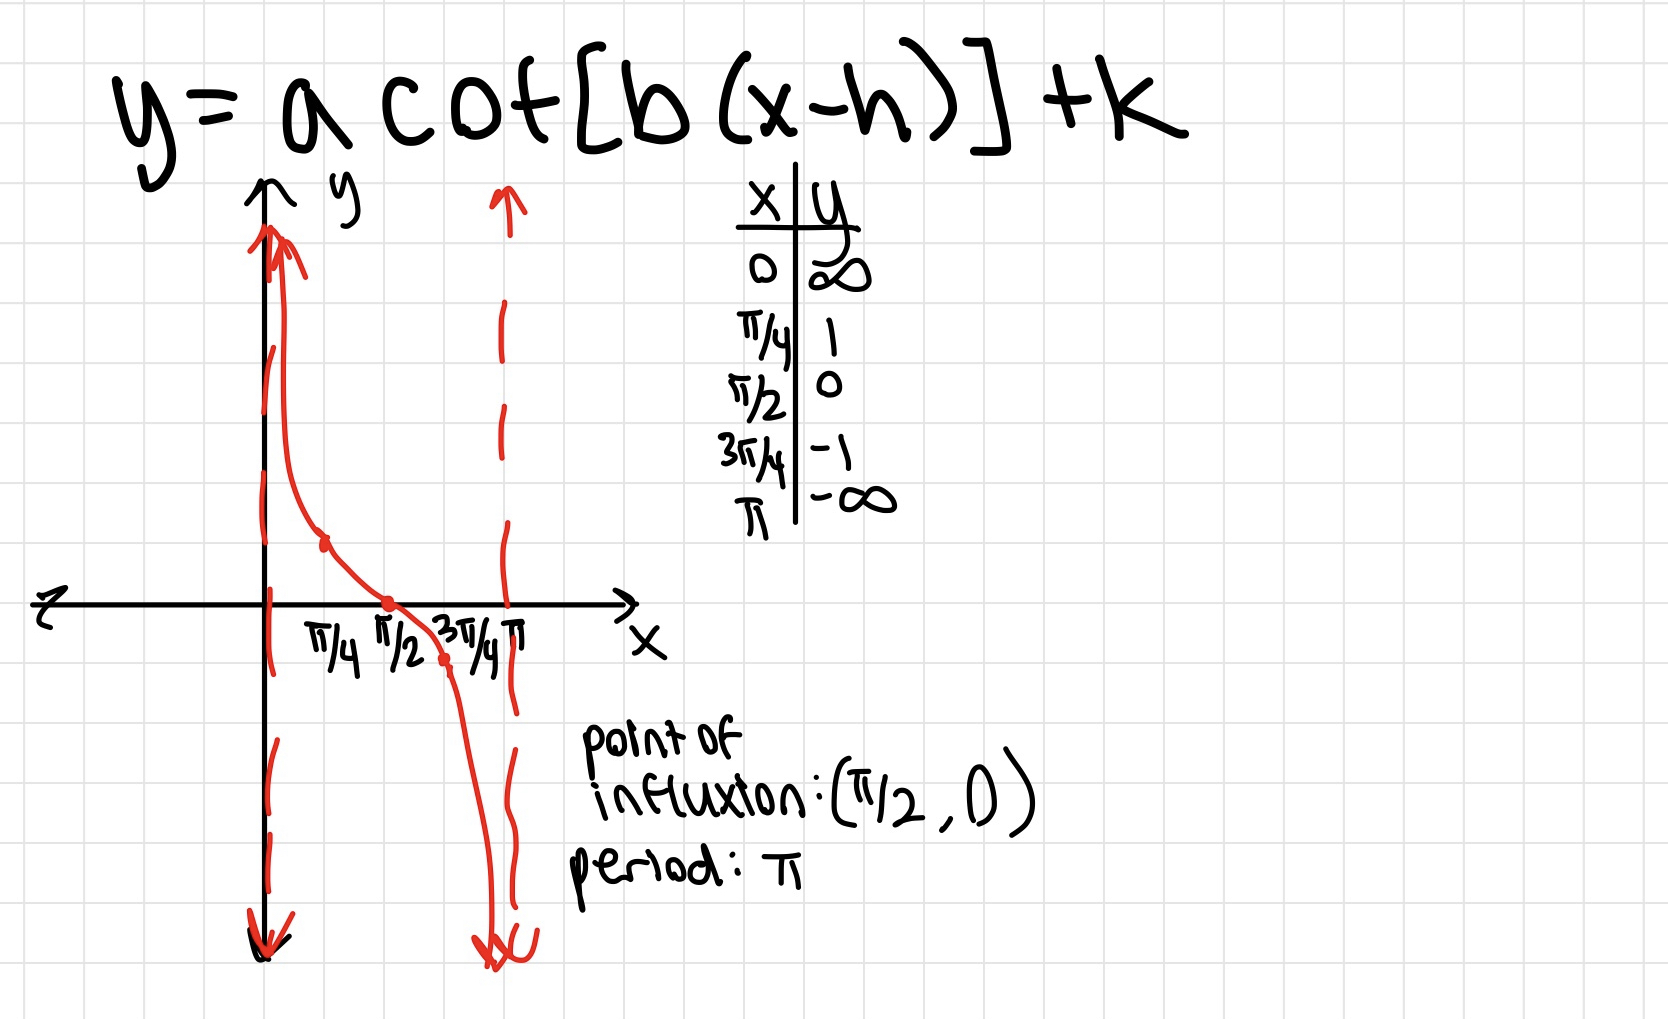 y = a cot[b(x-h)] + k
y
x y
0 ∞
π/4 1
π/2 0
3π/4 -1
π -∞
π/4 π/2 3π/4 π
x
point of
influxion: (π/2, 0)
period: π